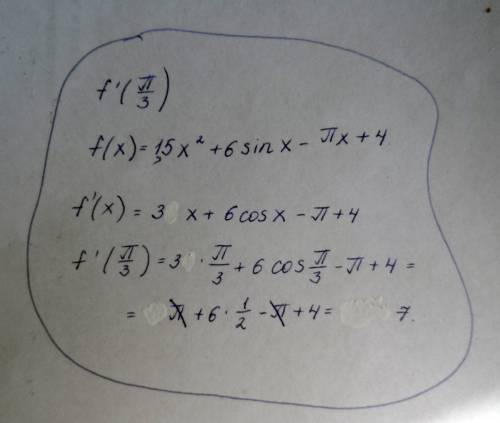 f'(π/3)
f(x) = 1,5x² + 6 sin x − πx + 4
f'(x) = 3 x + 6 cos x − π + 4
f'(π/3) = 3 · π/3 + 6 cos π/3 − π + 4 =
= π + 6 · 1/2 − π + 4 = 7.